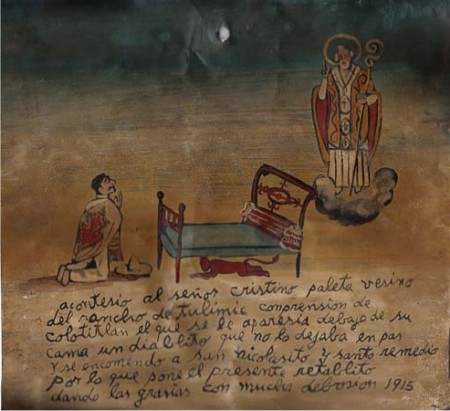 acontesio al señor cristino paleta vesino
del rancho de tulimic conprension de
colotitlan el que se le aparesia debajo de su
cama un diablito que no lo dejaba en pas
y se encomendo a san Nicolasito y santo remedio
por lo que pone el presente retablito
dando las grasias con mucha debosion 1915